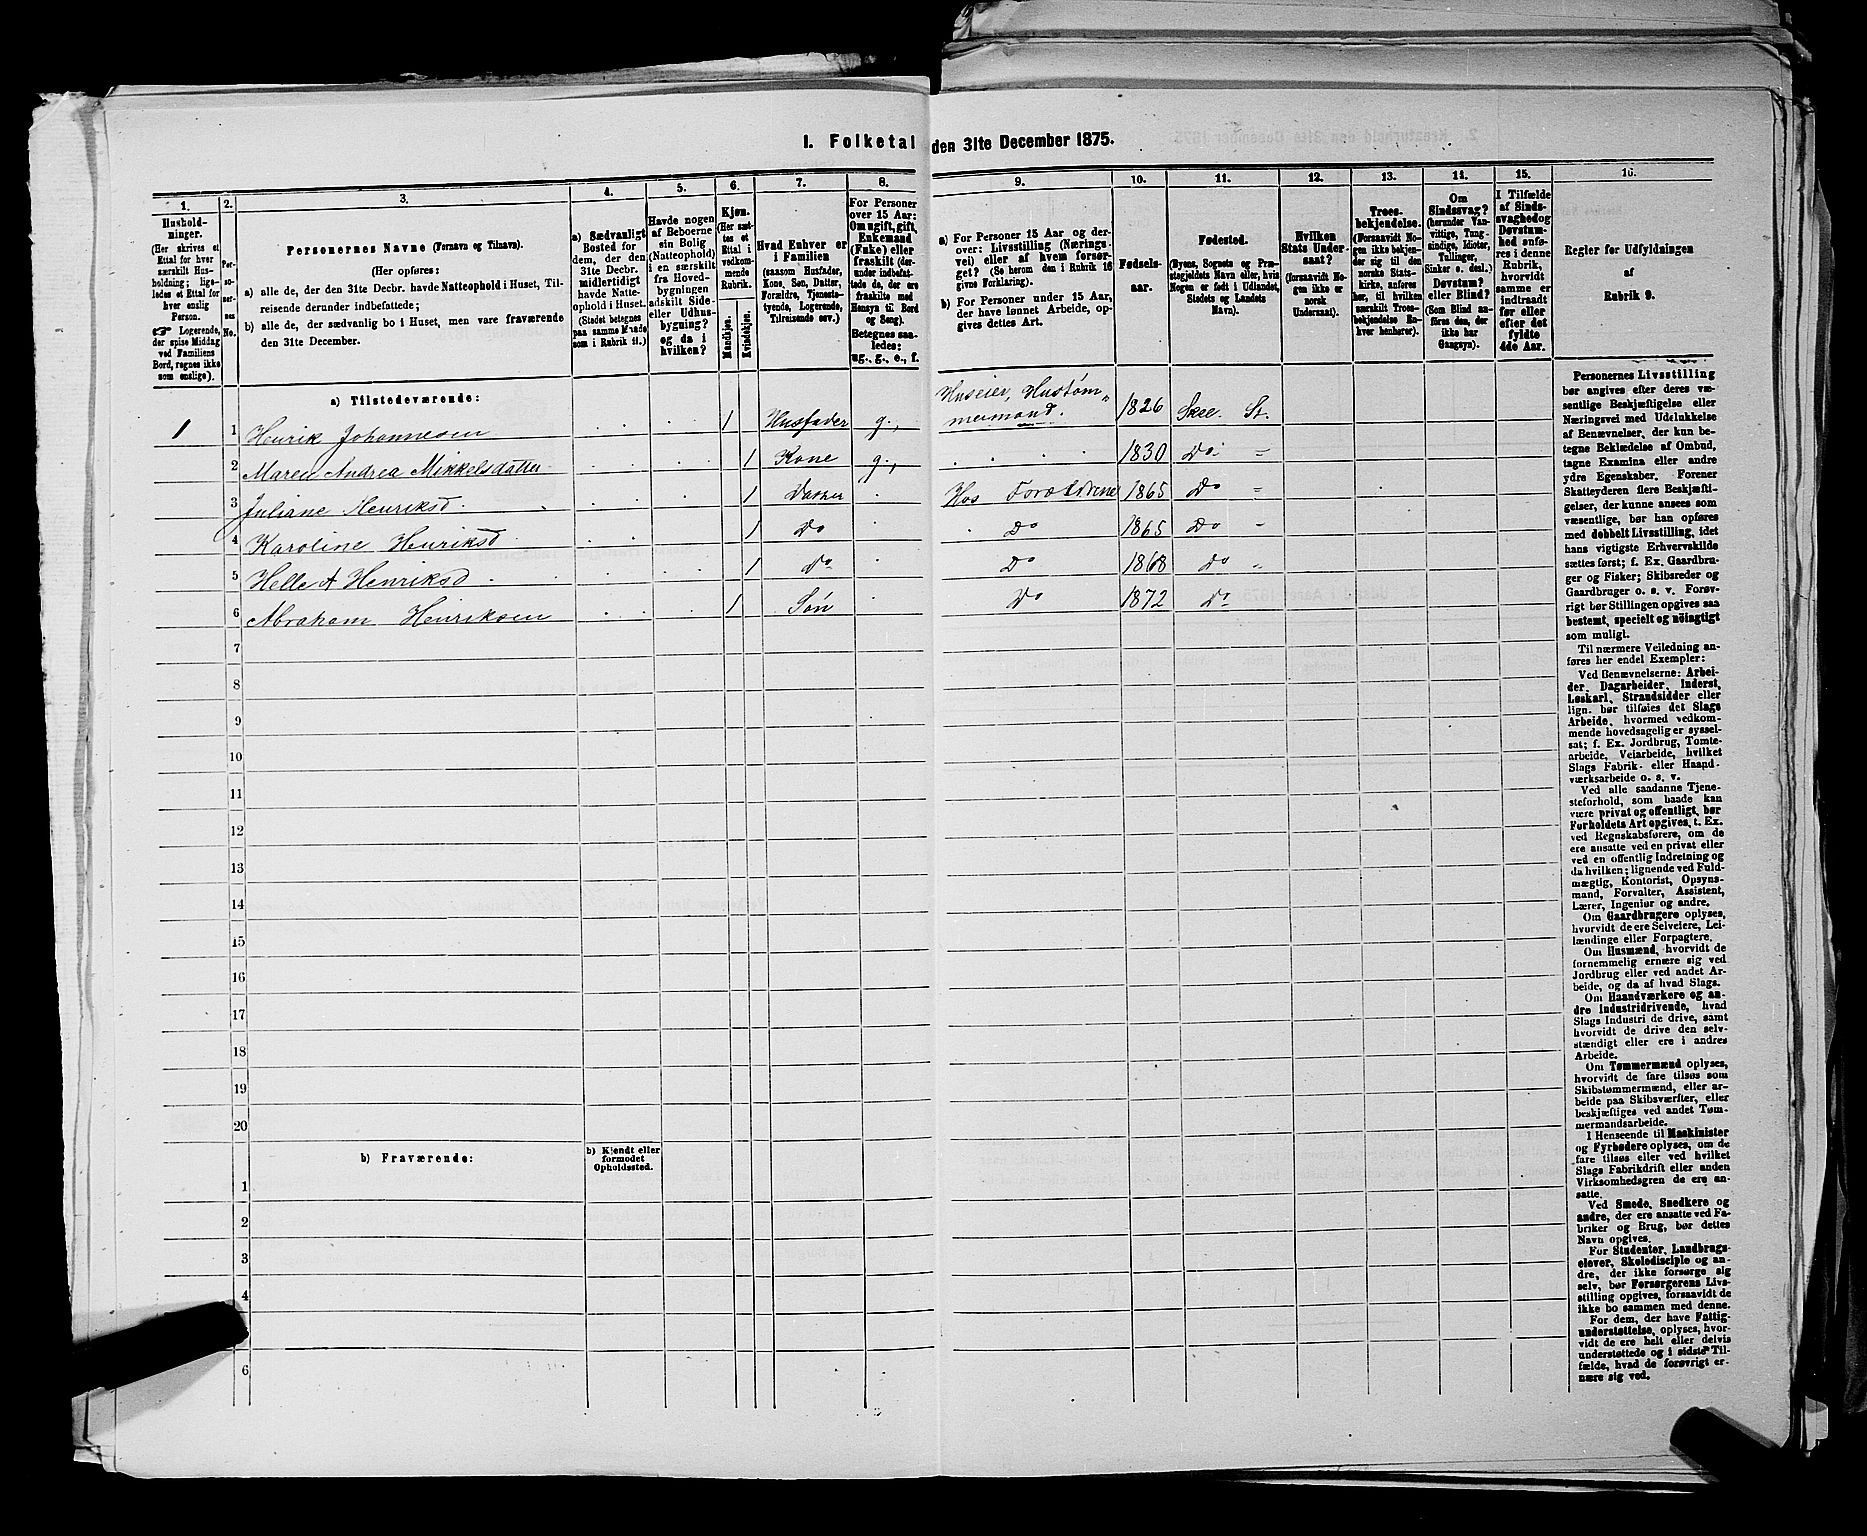 1. Folketal den 31te December 1875.
1. 2. 3. 4. 5. 6. 7. 8. 9. 10. 11. 12. 13. 14. 15. 16.
Hushold-
ninger.
(Her skrives et
Ettal for hver
særskilt Hus-
holdning; lige-
ledes et Ettal for
hver enslig
Person.
☞ Logerende,
der spise Middag
ved Familiens
Bord, regnes ikke
som enslige).
Per-
so-
ner-
nes
No.
Personernes Navne (Fornavn og Tilnavn).
(Her opføres:
a) alle de, der den 31te Decbr. havde Natteophold i Huset, Til-
reisende derunder indbefattede;
b) alle de, der sædvanlig bo i Huset, men vare fraværende
den 31te December.
a) Sædvanligt
Bosted for
dem, der den
31te Decbr.
midlertidigt
havde Natte-
ophold i Huset.
(Stedet betegnes
paa samme Maade
som i Rubrik 11.)
Havde nogen
af Beboerne
sin Bolig
(Natteophold)
i en særskilt
fra Hoved-
bygningen
adskilt Side-
eller Udhus-
bygning?
og da i
hvilken?
Kjøn.
(Her sæt-
tes et
Ettal i
vedkom-
mende
Rubrik.
Mandkjøn.
Kvindekjøn.
Hvad Enhver er
i Familien
(saasom Husfader,
Kone, Søn, Datter,
Forældre, Tjeneste-
tyende, Logerende,
Tilreisende osv.)
For Personer
over 15 Aar:
Om ugift, gift,
Enkemand
(Enke) eller
fraskilt (der-
under indbefat-
tede de, der ere
fraskilte med
Hensyn til Bord
og Seng).
Betegnes saa-
ledes:
ug., g., e., f.
a) For Personer 15 Aar og der-
over: Livsstilling (Nærings-
vei) eller af hvem forsør-
get? (Se herom den i Rubrik 16
givne Forklaring).
b) For Personer under 15 Aar,
der have lønnet Arbeide, op-
gives dettes Art.
Fødsels-
aar.
Fødested.
(Byens, Sognets og Præ-
stegjeldets Navn eller, hvis
Nogen er født i Udlandet,
Stedets og Landets
Navn).
Hvilken
Stats Under-
saat?
(forsaavidt No-
gen ikke er
norsk
Undersaat).
Troes-
bekjendelse.
(Forsaavidt No-
gen ikke bekjen-
der sig til den
norske Stats-
kirke, anføres
her, til hvilken
særskilt Troes-
bekjendelse En-
hver henhører).
Om
Sindssvag?
(herunder Van-
vittige, Tung-
sindige, Idioter,
Tullinger,
Sinker o. desl.)
Døvstum?
eller Blind?
(Som Blind an-
føres den, der
ikke har
Gangsyn).
I Tilfælde
af Sinds-
svaghed og
Døvstum-
hed anfø-
res i denne
Rubrik,
hvorvidt
samme er
indtraadt
før eller
efter det
fyldte
4de Aar.
Regler for Udfyldningen
af
Rubrik 9.
a) Tilstedeværende:
1 1 Henrik Johannesen 1 Husfader g., Huseier, Hustøm-
mermand. 1826 Skee. St.
2 Maren Andrea Mikkelsdatter 1 Kone g., 1830 Do
3 Juliane Henriksd. 1 Datter Hos Forældrene 1865 Do
4 Karoline Henriksd 1 Do Do 1865 Do
5 Helle A Henriksd 1 Do Do 1868 Do
6 Abraham Henriksen 1 Søn Do 1872 Do
7
8
9
10
11
12
13
14
15
16
17
18
19
20
b) Fraværende:
b) Kjendt eller
formodet
Opholdssted.
1
2
3
4
6
Personernes Livsstilling
bør angives efter deres væ-
sentlige Beskjæftigelse eller
Næringsvei med Udelukkelse
af Benævnelser, der kun be-
tegne Beklædelse af Ombud,
tagne Examina eller andre
ydre Egenskaber. Forener
Skatteyderen flere Beskjæfti-
gelser, der kunne ansees som
væsentlige, bør han opføres
med dobbelt Livsstilling, idet
hans vigtigste Erhvervskilde
sættes først; f. Ex. Gaardbru-
ger og Fisker; Skibsreder og
Gaardbruger o. s. v. Forøv-
rigt bør Stillingen opgives saa
bestemt, specielt og nöiagtigt
som muligt.
Til nærmere Veiledning an-
føres her endel Exempler:
Ved Benævnelserne: Arbei-
der, Dagarbeider, Inderst,
Løskarl, Strandsidder eller
lign. bør tilføies det Slags
Arbeide, hvormed vedkom-
mende hovedsagelig er syssel-
sat; f. Ex. Jordbrug, Tomte-
arbeide, Veiarbeide, hvilket
Slags Fabrik- eller Haand-
værksarbeide o. s. v.
Ved alle saadanne Tjene-
steforhold, som baade kan
være privat og offentligt, bør
Forholdets Art opgives, t. Ex.
ved Regnskabsførere, om de
ere ansatte ved en privat eller
ved en offentlig Indretning og
da hvilken; lignende ved Fuld-
mægtig, Kontorist, Opsyns-
mand, Forvalter, Assistent,
Lærer, Ingeniør og andre.
Om Gaardbrugere oplyses,
hvorvidt de ere Selveiere, Lei-
lændinge eller Forpagtere.
Om Husmænd, hvorvidt de
fornemmelig ernære sig ved
Jordbrug eller ved andet Ar-
beide, og da af hvad Slags.
Om Haandværkere og an-
dre industridrivende, hvad
Slags Industri de drive, samt
hvorvidt de drive den selv-
stændigt eller ere i andres
Arbeide.
Om Tømmermænd oplyses,
hvorvidt de fare tilsøs som
Skibstømmermænd, eller ar-
beide paa Skibsværfter, eller
beskjæftiges ved andet Tøm-
mermandsarbeide.
I Henseende til Maskinister
og Fyrbødere oplyses, om de
fare tilsøs eller ved hvilket
Slags Fabrikdrift eller anden
Virksomhedsgren de ere an-
satte.
Ved Smede, Snedkere og
andre, der ere ansatte ved Fa-
briker og Brug, bør dettes
Navn opgives.
For Studenter, Landbrugs-
elever, Skoledisciple og an-
dre, der ikke forsørge sig
selv, bør Forsørgerens Livs-
stilling opgives, forsaavidt de
ikke bo sammen med denne.
For dem, der have Fattig-
understøttelse, oplyses, hvor-
vidt de ere helt eller delvis
understøttede og i sidste Til-
fælde, hvad de forøvrigt er-
nære sig ved.